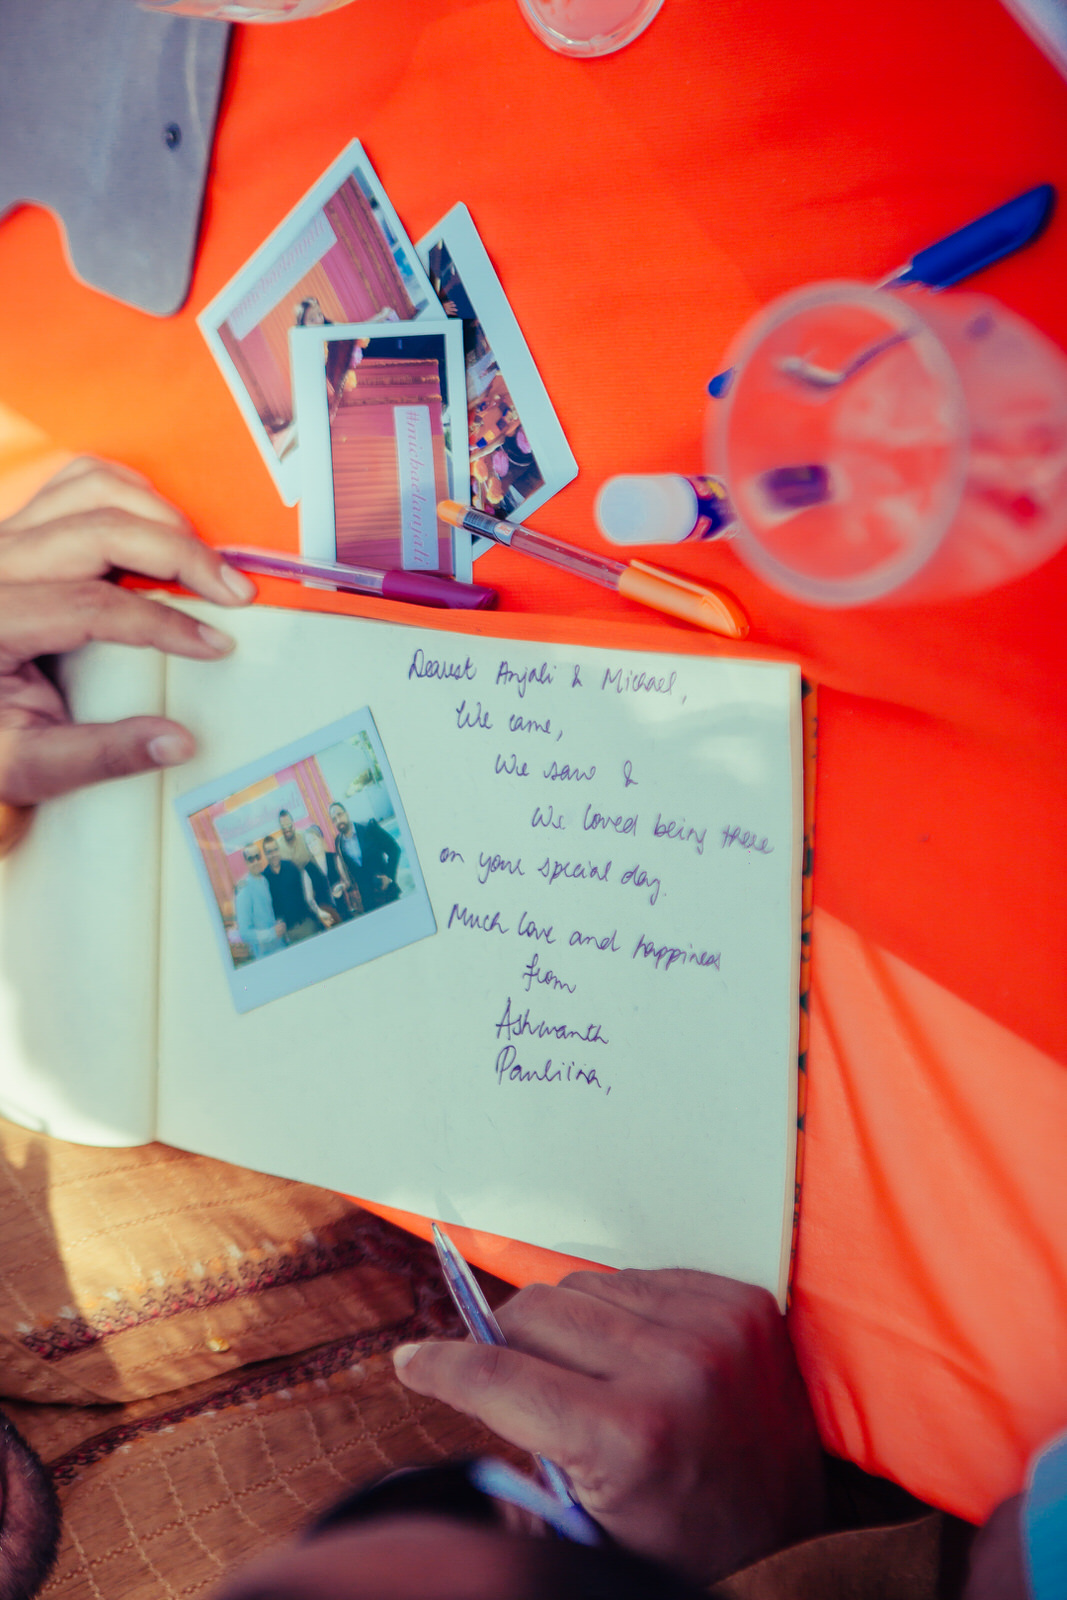 #michaelanjali
Dearest Anjali & Michael,
We came,
We saw &
We loved being there
on your special day.
Much love and happiness
from
Ashwanth
Pauliina,